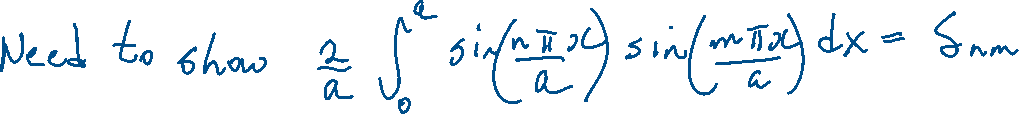 Need to show 2/a ∫₀ᵃ sin(nπx/a) sin(mπx/a) dx = δₙₘ